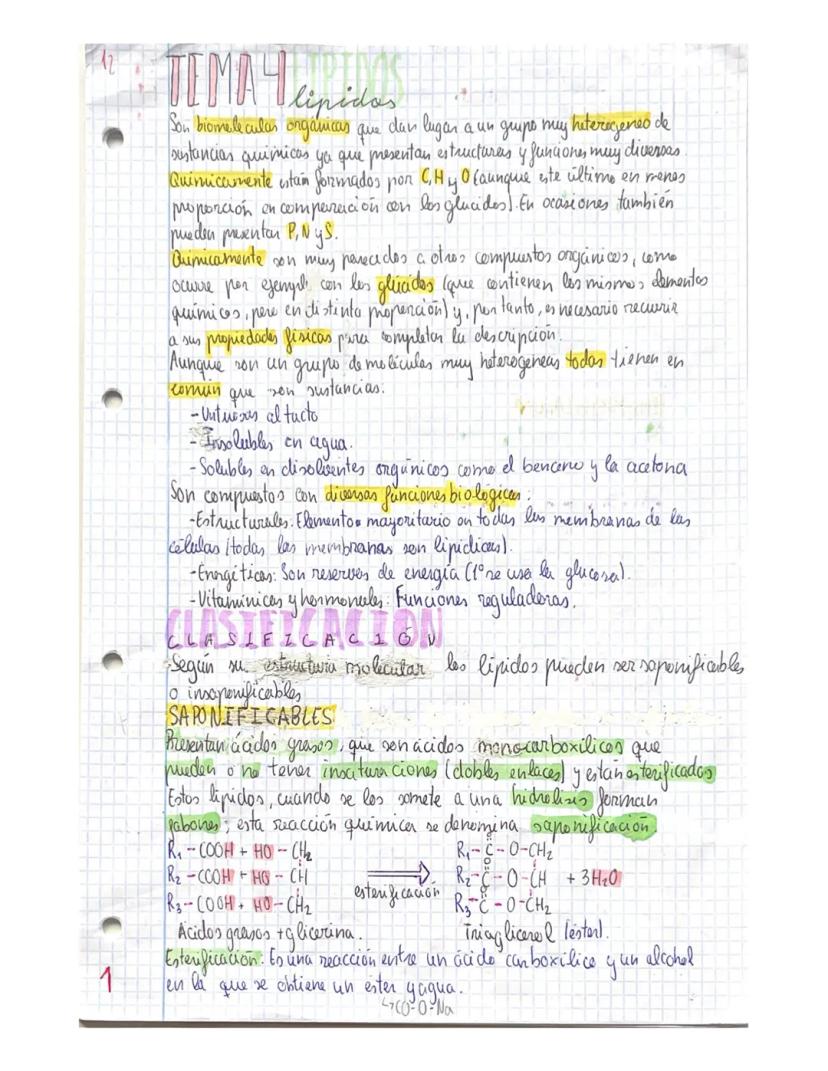 12
TEMA 4 LIPIDOS
lipidos
Son biomoleculas orgánicas que dan lugar a un grupo muy heterogeneo de
sustancias quimicas ya que presentan estructuras y funciones muy diversas.
Quimicamente están formados por C, H y O (aunque este último en menos
proporción en comparación con los glucidos). En ocasiones también
pueden presentar P, N y S.
Quimicamente son muy parecidos a otros compuestos orgánicos, como
ocurre por ejemplo con los glúcidos (que contienen los mismos elementos
químicos, pero en distinta proporción) y, por tanto, es necesario recurrir
a sus propiedades físicas para completar la descripción.
Aunque son un grupo de moléculas muy heterogeneas todas tienen en
común que son sustancias:
- Untuosas al tacto
- Insolubles en agua.
- Solubles en disolventes orgánicos como el benceno y la acetona
Son compuestos con diversas funciones biologicas:
- Estructurales. Elemento mayoritario en todas las membranas de las
células (todas las membranas son lipidicas).
- Energéticas: Son reservas de energía (1º se usa la glucosa).
- Vitamínicas y hormonales: Funciones reguladoras.
CLASIFICACION
CLASIFICACIÓN
Según su estructura molecular los lípidos pueden ser saponificables
o insaponificables
SAPONIFICABLES
Presentan ácidos grasos, que son ácidos monocarboxílicos que
pueden o no tener insaturaciones (dobles enlaces) y están esterificados
Estos lípidos, cuando se les somete a una hidrolisis forman
jabones; esta reacción química se denomina saponificación.
R₁ - COOH + HO - CH₂ R₁ - C - O - CH₂
R₂ - COOH + HO - CH esterificación R₂ - C - O - CH + 3H₂O
R₃ - COOH + HO - CH₂ R₃ - C - O - CH₂
Ácidos grasos + glicerina. Triaglicerol (éster).
Esterificación: Es una reacción entre un ácido carboxílico y un alcohol
en la que se obtiene un ester y agua.
↳ CO-O-Na
1